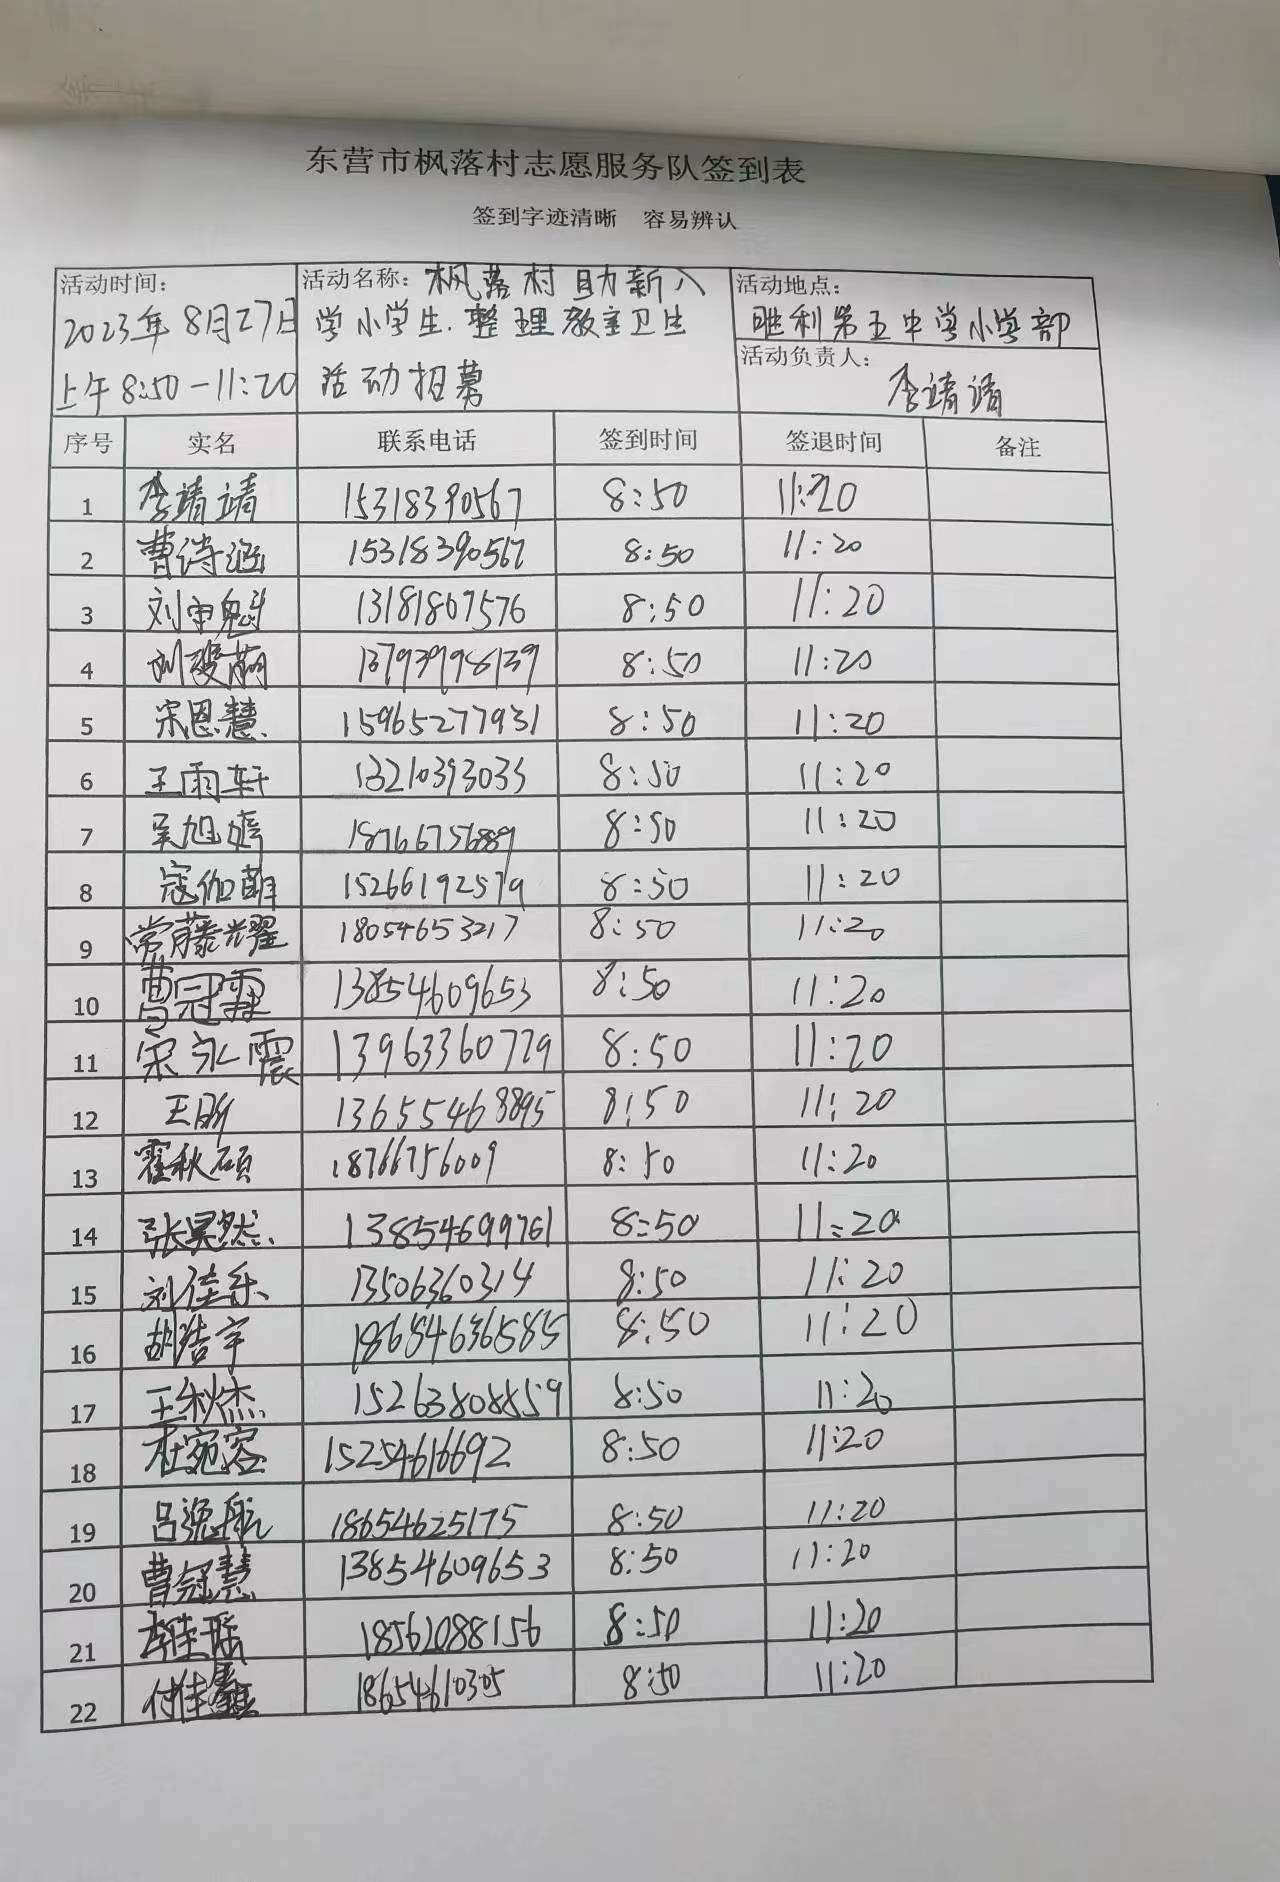 东营市枫落村志愿服务队签到表
签到字迹清晰 容易辨认
活动时间：
2023年8月27日
上午8:50-11:20
活动名称：枫落村助新入
学小学生.整理教室卫生
活动招募
活动地点：
胜利第五中学小学部
活动负责人：
李靖靖
序号 实名 联系电话 签到时间 签退时间 备注
1 李靖靖 15318390567 8:50 11:20
2 曹诗涵 15318390567 8:50 11:20
3 刘审魁 13181867576 8:50 11:20
4 13793998139 8:50 11:20
5 宋恩慧 15965277931 8:50 11:20
6 王雨轩 13210393033 8:50 11:20
7 吴旭 18766756889 8:50 11:20
8 寇伽萌 15266192579 8:50 11:20
9 常藤耀 18054653217 8:50 11:20
10 曹冠霖 13854609653 8:50 11:20
11 宋永震 13963360779 8:50 11:20
12 王昕 13655468895 8:50 11:20
13 霍秋硕 18766756009 8:50 11:20
14 张昊然 13854699761 8:50 11:20
15 刘佳乐 13506360314 8:50 11:20
16 胡浩宇 18684636585 8:50 11:20
17 王秋杰 15263808859 8:50 11:20
18 杜宛容 15254616692 8:50 11:20
19 吕逸航 18654625175 8:50 11:20
20 曹冠慧 13854609653 8:50 11:20
21 李佳瑶 18562088156 8:50 11:20
22 付佳 18654610305 8:50 11:20